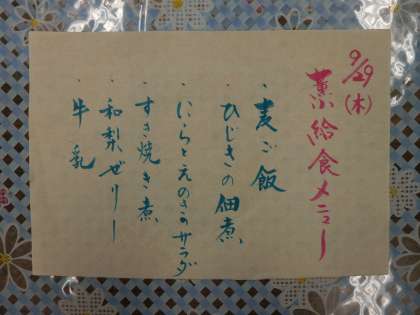 9/29(木)
薫給食メニュー
・麦ご飯
・ひじきの佃煮
・にらとえのきのサラダ
・すき焼き煮
・和梨ゼリー
・牛乳